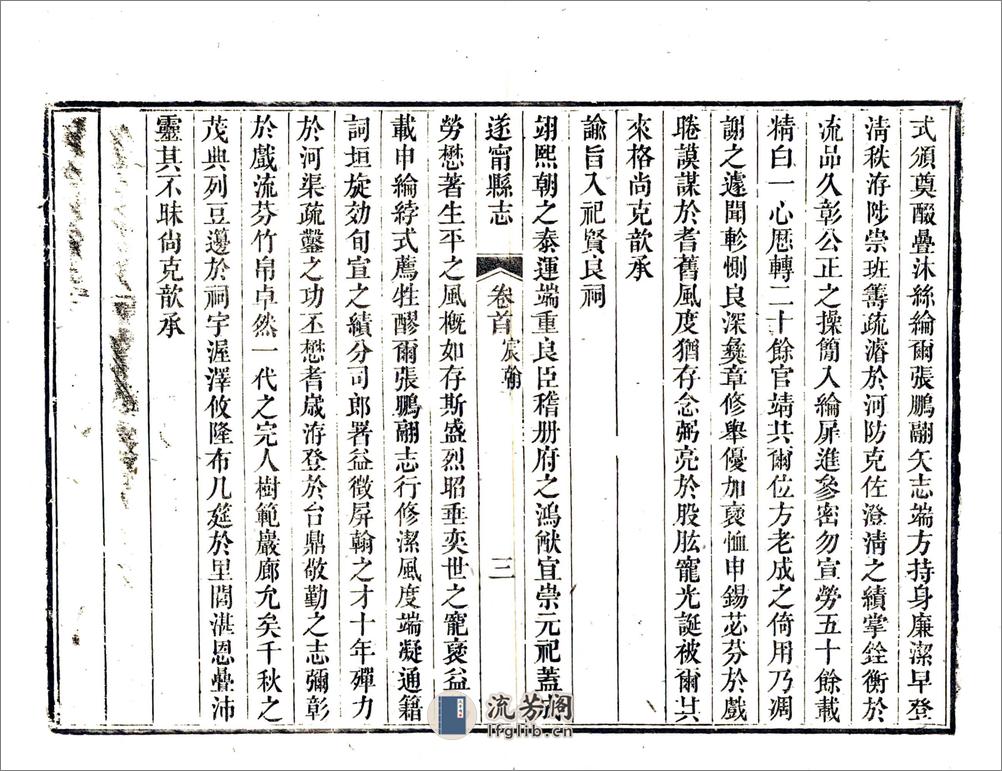 式頒奠醊疊沐絲綸爾張鵬翮矢志端方持身廉潔早登
淸秩洊陟崇班籌疏濬於河防克佐澄淸之績掌銓衡於
流品久彰公正之操簡入綸扉進參密勿宣勞五十餘載
精白一心歷轉二十餘官靖共爾位方老成之倚用乃凋
謝之遽聞軫惻良深彝章修舉優加褒恤申錫苾芬於戲
睠謨謀於耆舊風度猶存念弼亮於股肱寵光誕被爾其
來格尚克歆承
諭旨入祀賢良祠
翊熙朝之泰運端重良臣稽册府之鴻猷宜崇元祀蓋
遂甯縣志 卷首 宸翰 三
勞懋著生平之風槪如存斯盛烈昭垂奕世之寵褒益
載申綸綍式薦牲醪爾張鵬翮志行修潔風度端凝通籍
詞垣旋効旬宣之績分司郎署益徵屏翰之才十年殫力
於河渠疏鑿之功丕懋耆歲洊登於台鼎敬勤之志彌彰
於戲流芬竹帛卓然一代之完人樹範巖廊允矣千秋之
茂典列豆籩於祠宇渥澤攸隆布几筵於里閭湛恩疊沛
靈其不昧尙克歆承
流芳阁
lfglib.cn